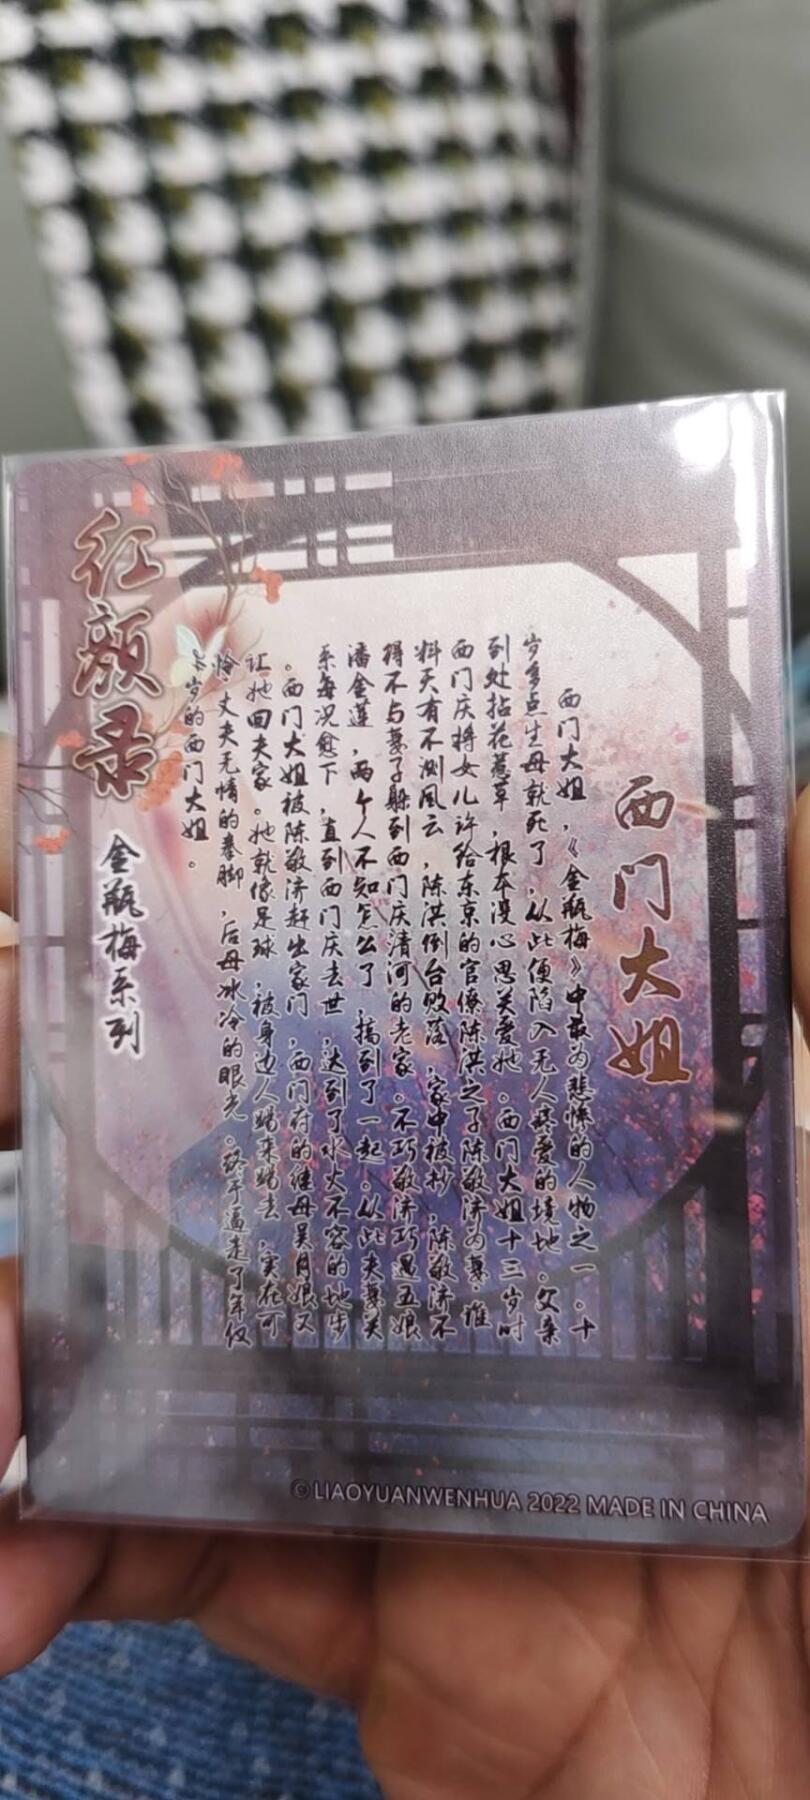 西门大姐
西门大姐，《金瓶梅》中最为悲惨的人物之一。十
岁多点生母就死了，从此便陷入无人疼爱的境地。父亲
到处拈花惹草，根本没心思关爱她。西门大姐十三岁时
西门庆将女儿许给东京的官僚陈洪之子陈敬济为妻，谁
料天有不测风云，陈洪倒台败落，家中被抄，陈敬济不
得不与妻子躲到西门庆清河的老家。不巧敬济巧遇五娘
潘金莲，两个人不知怎么了，搞到了一起。从此夫妻关
系每况愈下，直到西门庆去世，达到了水火不容的地步
。西门大姐被陈敬济赶出家门，西门府的继母吴月娘又
让她回夫家。她就像是球，被身边人踢来踢去，实在可
怜，丈夫无情的拳脚，后母冰冷的眼光。终于逼走了年仅
岁的西门大姐。
红颜录
金瓶梅系列
©LIAOYUANWENHUA 2022 MADE IN CHINA